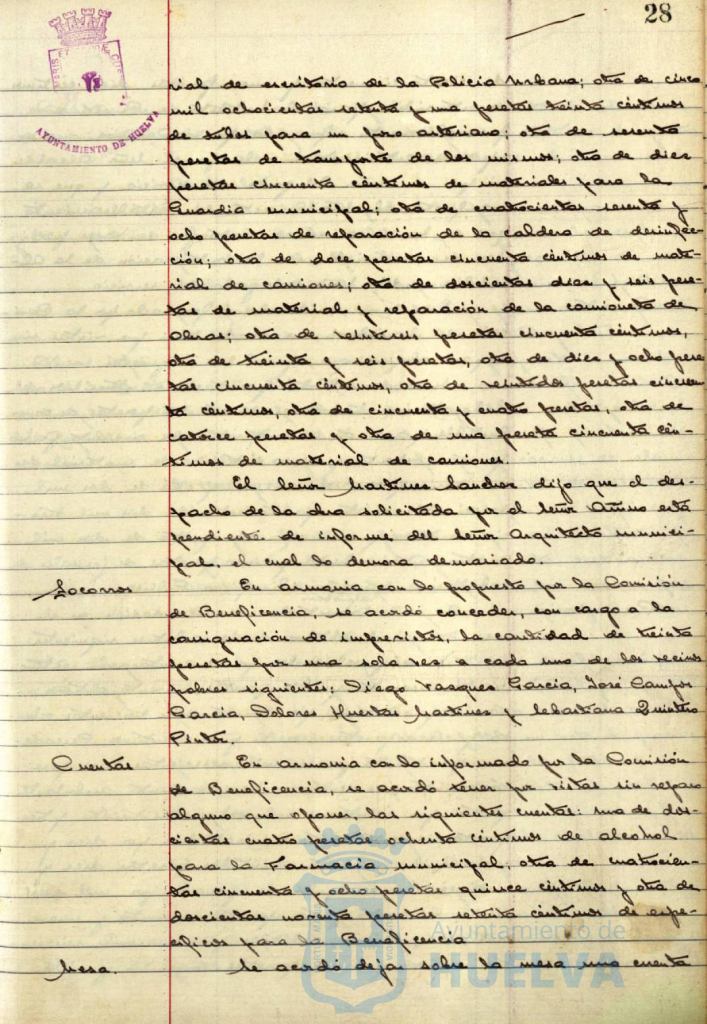 28
AYUNTAMIENTO DE HUELVA
rial de escritorio de la Policía Urbana; otra de cinco
mil ochocientas setenta y una pesetas treinta céntimos
de tubos para un pozo artesiano; otra de sesenta
pesetas de transporte de los mismos; otra de diez
pesetas cincuenta céntimos de materiales para la
Guardia municipal; otra de cuatrocientas sesenta y
ocho pesetas de reparación de la caldera de desinfec-
ción; otra de doce pesetas cincuenta céntimos de mate-
rial de camiones; otra de doscientas diez y seis pese-
tas de material y reparación de la camioneta de
Obras; otra de veintiseis pesetas cincuenta céntimos,
otra de treinta y seis pesetas, otra de diez y ocho pese
tas cincuenta céntimos, otra de veintidos pesetas cincuen
ta céntimos, otra de cincuenta y cuatro pesetas, otra de
catorce pesetas y otra de una peseta cincuenta cén-
timos de material de camiones.
El Señor Martínez Sánchez dijo que el des-
pacho de la obra solicitada por el Señor está
pendiente de informe del Señor Arquitecto munici-
pal, el cual lo demora demasiado.
Socorros
En armonía con lo propuesto por la Comisión
de Beneficencia, se acordó conceder, con cargo a la
consignación de imprevistos, la cantidad de treinta
pesetas por una sola vez a cada uno de los vecinos
pobres siguientes: Diego Vazquez García, José Campos
García, Dolores Huertas Martínez y Sebastiana Quintero
Pintor.
Cuentas
En armonía con lo informado por la Comisión
de Beneficencia, se acordó tener por vistas sin reparo
alguno que oponer, las siguientes cuentas: una de dos-
cientas cuatro pesetas ochenta céntimos de alcohol
para la Farmacia municipal, otra de cuatrocien-
tas cincuenta y ocho pesetas quince céntimos y otra de
doscientas noventa pesetas setenta céntimos de espe-
cíficos para la Beneficencia
Mesa.
Se acordó dejar sobre la mesa una cuenta
Ayuntamiento de
HUELVA